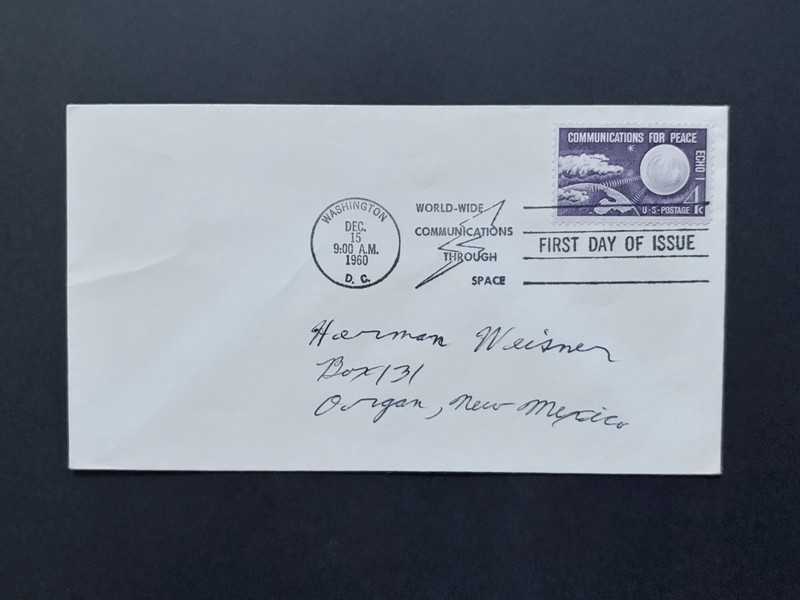 COMMUNICATIONS FOR PEACE
ECHO I
U·S·POSTAGE 4c
WASHINGTON
DEC.
15
9:00 A.M.
1960
D. C.
WORLD-WIDE
COMMUNICATIONS
THROUGH
SPACE
FIRST DAY OF ISSUE
Herman Weisner
Box 131
Organ, New Mexico